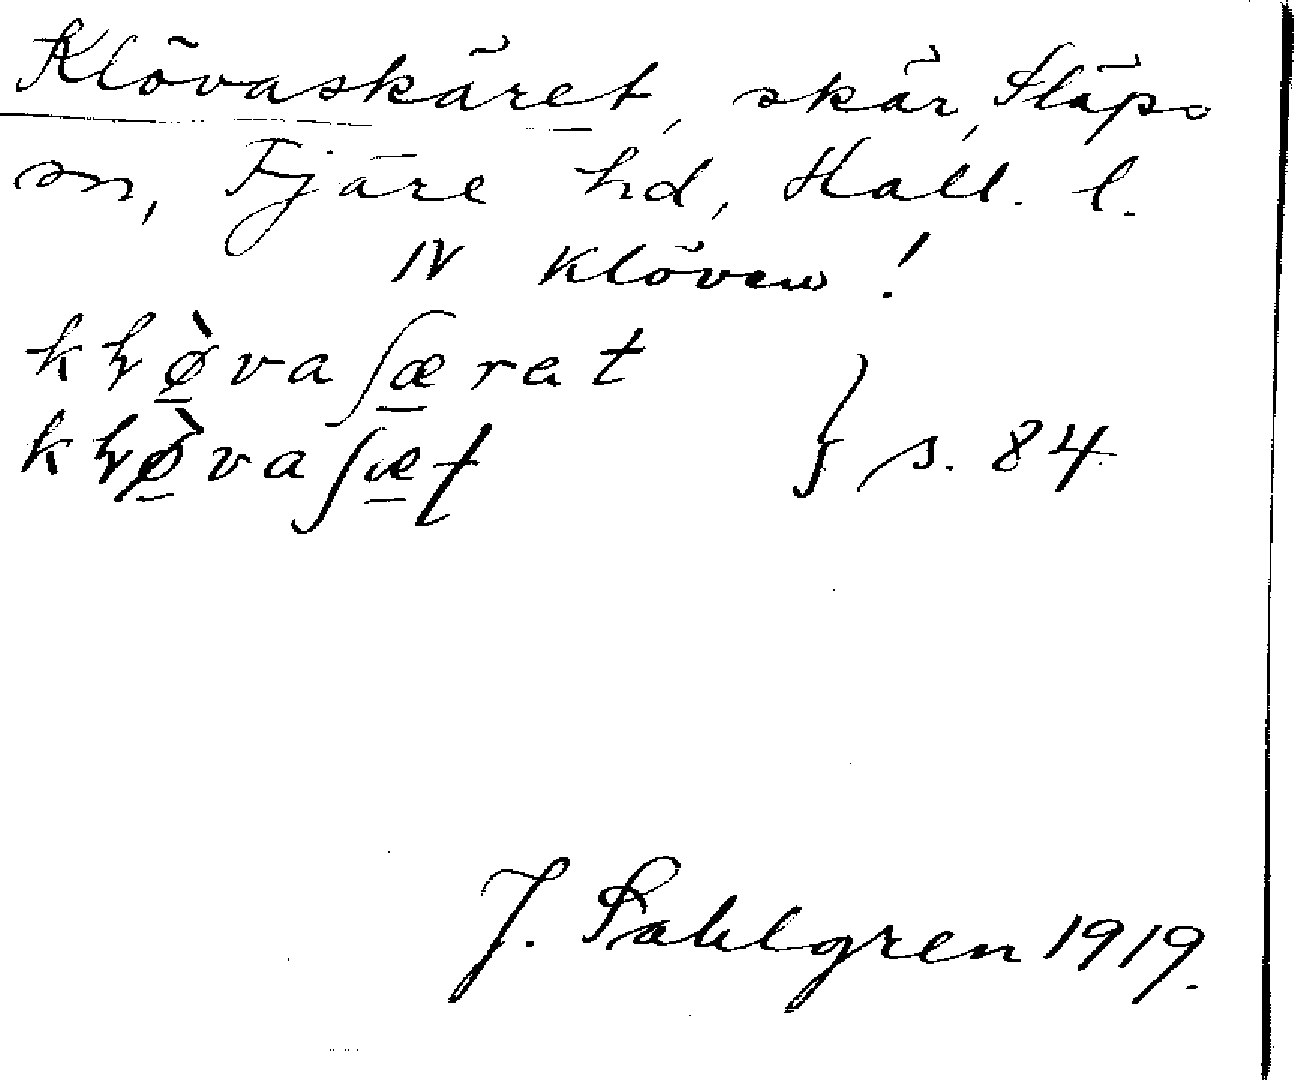 Klövaskäret, skär, Släps
sn, Fjäre hd, Hall. l.
N Klöven!
kɦø̱̀vaʃæ̱rat
kɦø̱̀vaʃæ̱t } s. 84.
J. Sahlgren 1919.